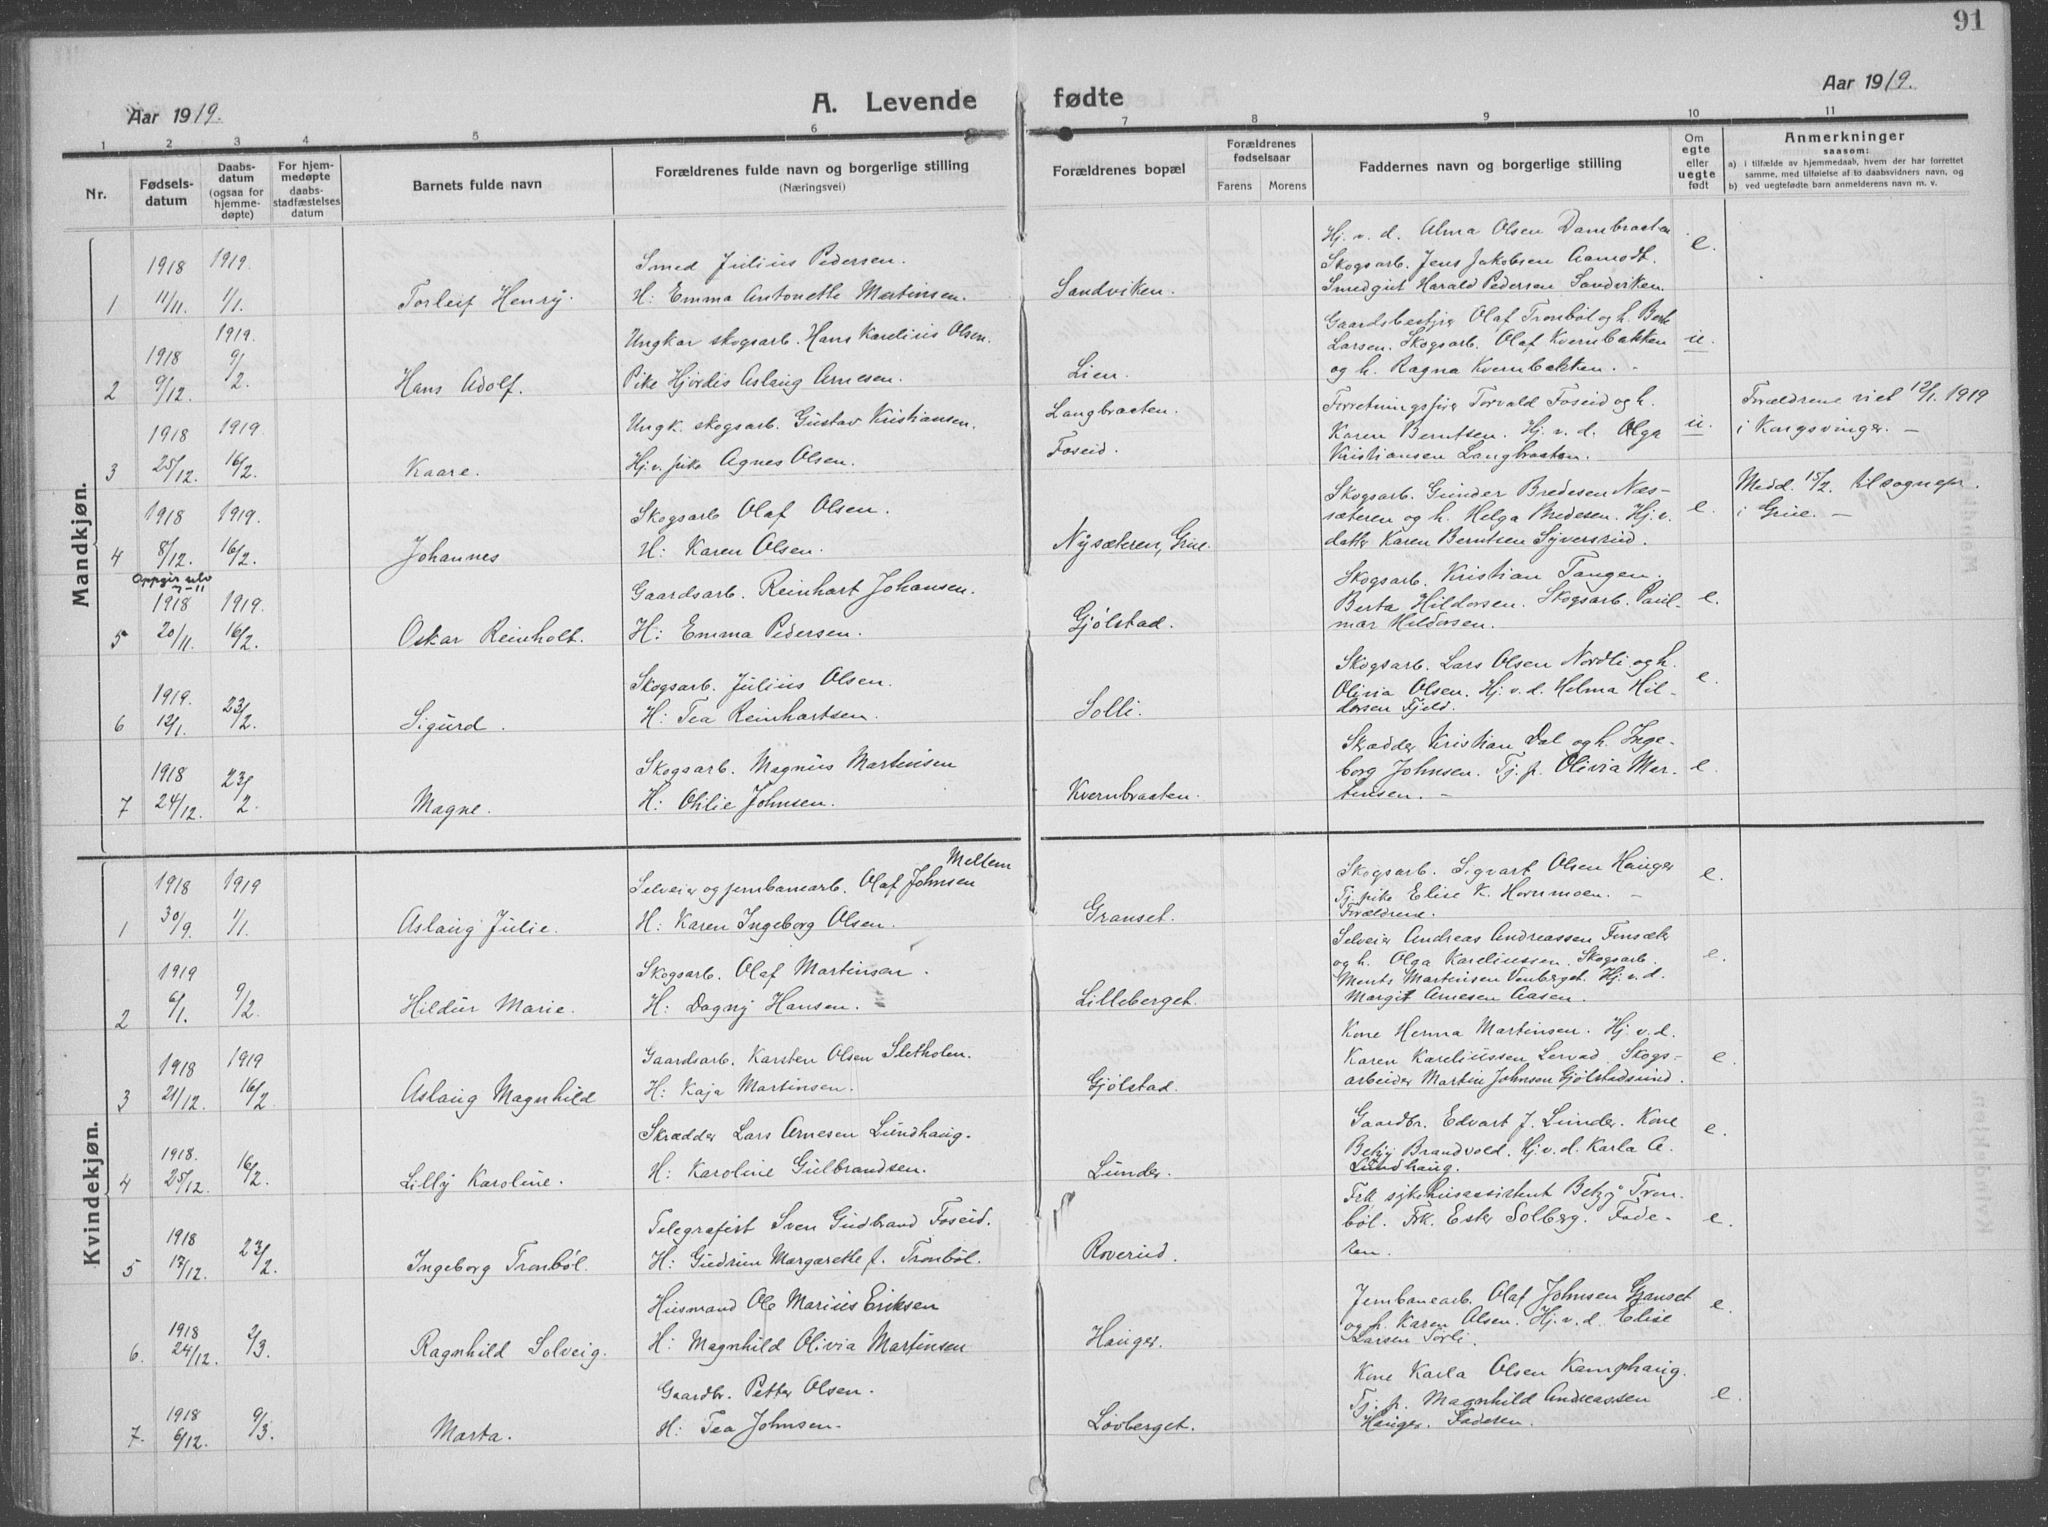 91
Aar 1919.
A. Levende fødte
Aar 1919.
1 2 3 4 5 6 7 8 9 10 11
Nr.
Fødselsdatum
Daabsdatum (ogsaa for hjemmedøpte)
For hjemmedøpte daabsstadfæstelses datum
Barnets fulde navn
Forældrenes fulde navn og borgerlige stilling
(Næringsvei)
Forældrenes bopæl
Forældrenes fødselsaar
Farens Morens
Faddernes navn og borgerlige stilling
Om egte eller uegte født
Anmerkninger
saasom:
a) i tilfælde av hjemmedaab, hvem der har forrettet
samme, med tilføielse af to daabsvidners navn, og
b) ved uegtefødte barn anmelderens navn m. v.
Mandkjøn.
1 1918 11/11. 1919. 1/1. Torleif Henry.
Smed Julius Pedersen.
H: Emma Antonette Martinsen.
Sandviken.
Hj. v. d. Alma Olsen Dambraaten
Skogsarb. Jens Jakobsen Aamodt.
Smedgut Harald Pedersen Sandviken.
e.
2 1918 9/12. 1919. 9/2. Hans Adolf.
Ungkar skogsarb. Hans Karelius Olsen.
Pike Hjördis Aslaug Arnesen.
Lien.
Gaardsbestyrer Olaf Tronböl og h. Berte
Larsen. Skogsarb. Olaf Kvernbakken
og h. Ragna Kvernbakken.
u.
3 1918 25/12. 1919. 16/2. Kaare.
Ungk. skogsarb. Gustav Kristiansen.
Hj.v. pike Agnes Olsen.
Langbraaten.
Foseid.
Forretningsfører Torvald Foseid og h.
Karen Berntsen. Hj. v. d. Olga
Kristiansen Langbraaten.
u.
Forældrene viet 12/1. 1919
i Kongsvinger. —
4 1918 8/12. 1919. 16/2. Johannes
Skogsarb Olaf Olsen.
H: Karen Olsen.
Nysæteren, Grue.
Skogsarb. Gunder Bredesen Næs-
sæteren og h. Helga Bredesen. Hj. v.
datter Karen Berntsen Syversrud.
e.
Medd. 15/2. til sognepr.
i Grue. —
Oppgir selv
7-11
5 1918 20/11. 1919. 16/2. Oskar Reinholt.
Gaardsarb. Reinhart Johansen.
H: Emma Pedersen.
Gjölstad.
Skogsarb. Kristian Tangen.
Berta Hildorsen. Skogsarb. Paul-
mar Hildorsen.
e.
6 1919. 12/1. 23/2. Sigurd.
Skogsarb. Julius Olsen.
H: Tea Reinhartsen.
Solli.
Skogsarb. Lars Olsen Nordli og h.
Olivia Olsen. Hj. v. d. Helma Hil-
dorsen Fjeld.
e.
7 1918 24/12. 23/2. Magne.
Skogsarb. Magnus Martinsen
H: Otilie Johnsen.
Kvernbraaten.
Skrædder Kristian Dal og h. Inge-
borg Johnsen. Tj. p. Olivia Mar-
tinsen. —
e.
Kvindekjøn.
1 1918 30/9. 1919 1/1. Aslaug Julie.
Meltem
Selveier og jernbanearb. Olaf Johnsen
H: Karen Ingeborg Olsen.
Granset.
Skogsarb. Sigvart Olsen Hauger
Tj. pike Elise K. Hornmoen. —
Forældrene.
e.
2 1919 6/1. 9/2. Hildur Marie.
Skogsarb. Olaf Martinsen.
H: Dagny Hansen.
Lilleberget.
Selveier Andreas Andreassen Finsæter
og h. Olga Kareliussen. Skogsarb.
Ments Martinsen Venberget. Hj. v. d.
Margit Arnesen Aasen.
e.
3 1918 21/12. 1919 16/2. Aslaug Magnhild
Gaardsarb. Karsten Olsen Sletholen.
H: Kaja Martinsen.
Gjölstad.
Kone Herma Martinsen. Hj. v. d.
Karen Kareliussen Lervad. Skogs-
arbeider Martin Johnsen Gjölstadsund.
e.
4 1918. 25/12. 16/2. Lilly Karoline.
Skrædder Lars Arnesen Lundhaug.
H: Karoline Gulbrandsen.
Lunder.
Gaardbr. Edvart J. Lunder. Kone
Betzy Brandvold. Hj. v. d. Karla A.
Lundhaug.
e.
5 1918 17/12. 23/2. Ingeborg Tronböl.
Telegrafist Sven Gudbrand Foseid.
H: Gudrun Margarethe f. Tronböl.
Roverud.
Frk sykehusassistent Betzy Tron-
böl. Frk. Ester Solberg. Fade-
ren.
e.
6. 1918 24/12. 2/3. Ragnhild Solveig.
Husmand Ole Marius Eriksen
H: Magnhild Olivia Martinsen
Hauger.
Jernbanearb. Olaf Johnsen Granset
og h. Karen Olsen. Hj. v. d. Elise
Larsen Torli.
e.
7. 1918 6/12. 9/3. Marta.
Gaardbr. Petter Olsen.
H: Tea Johnsen.
Lövberget.
Kone Karla Olsen Kamphaug.
Tj. p. Magnhild Andreassen
Hauger. Faderen.
e.